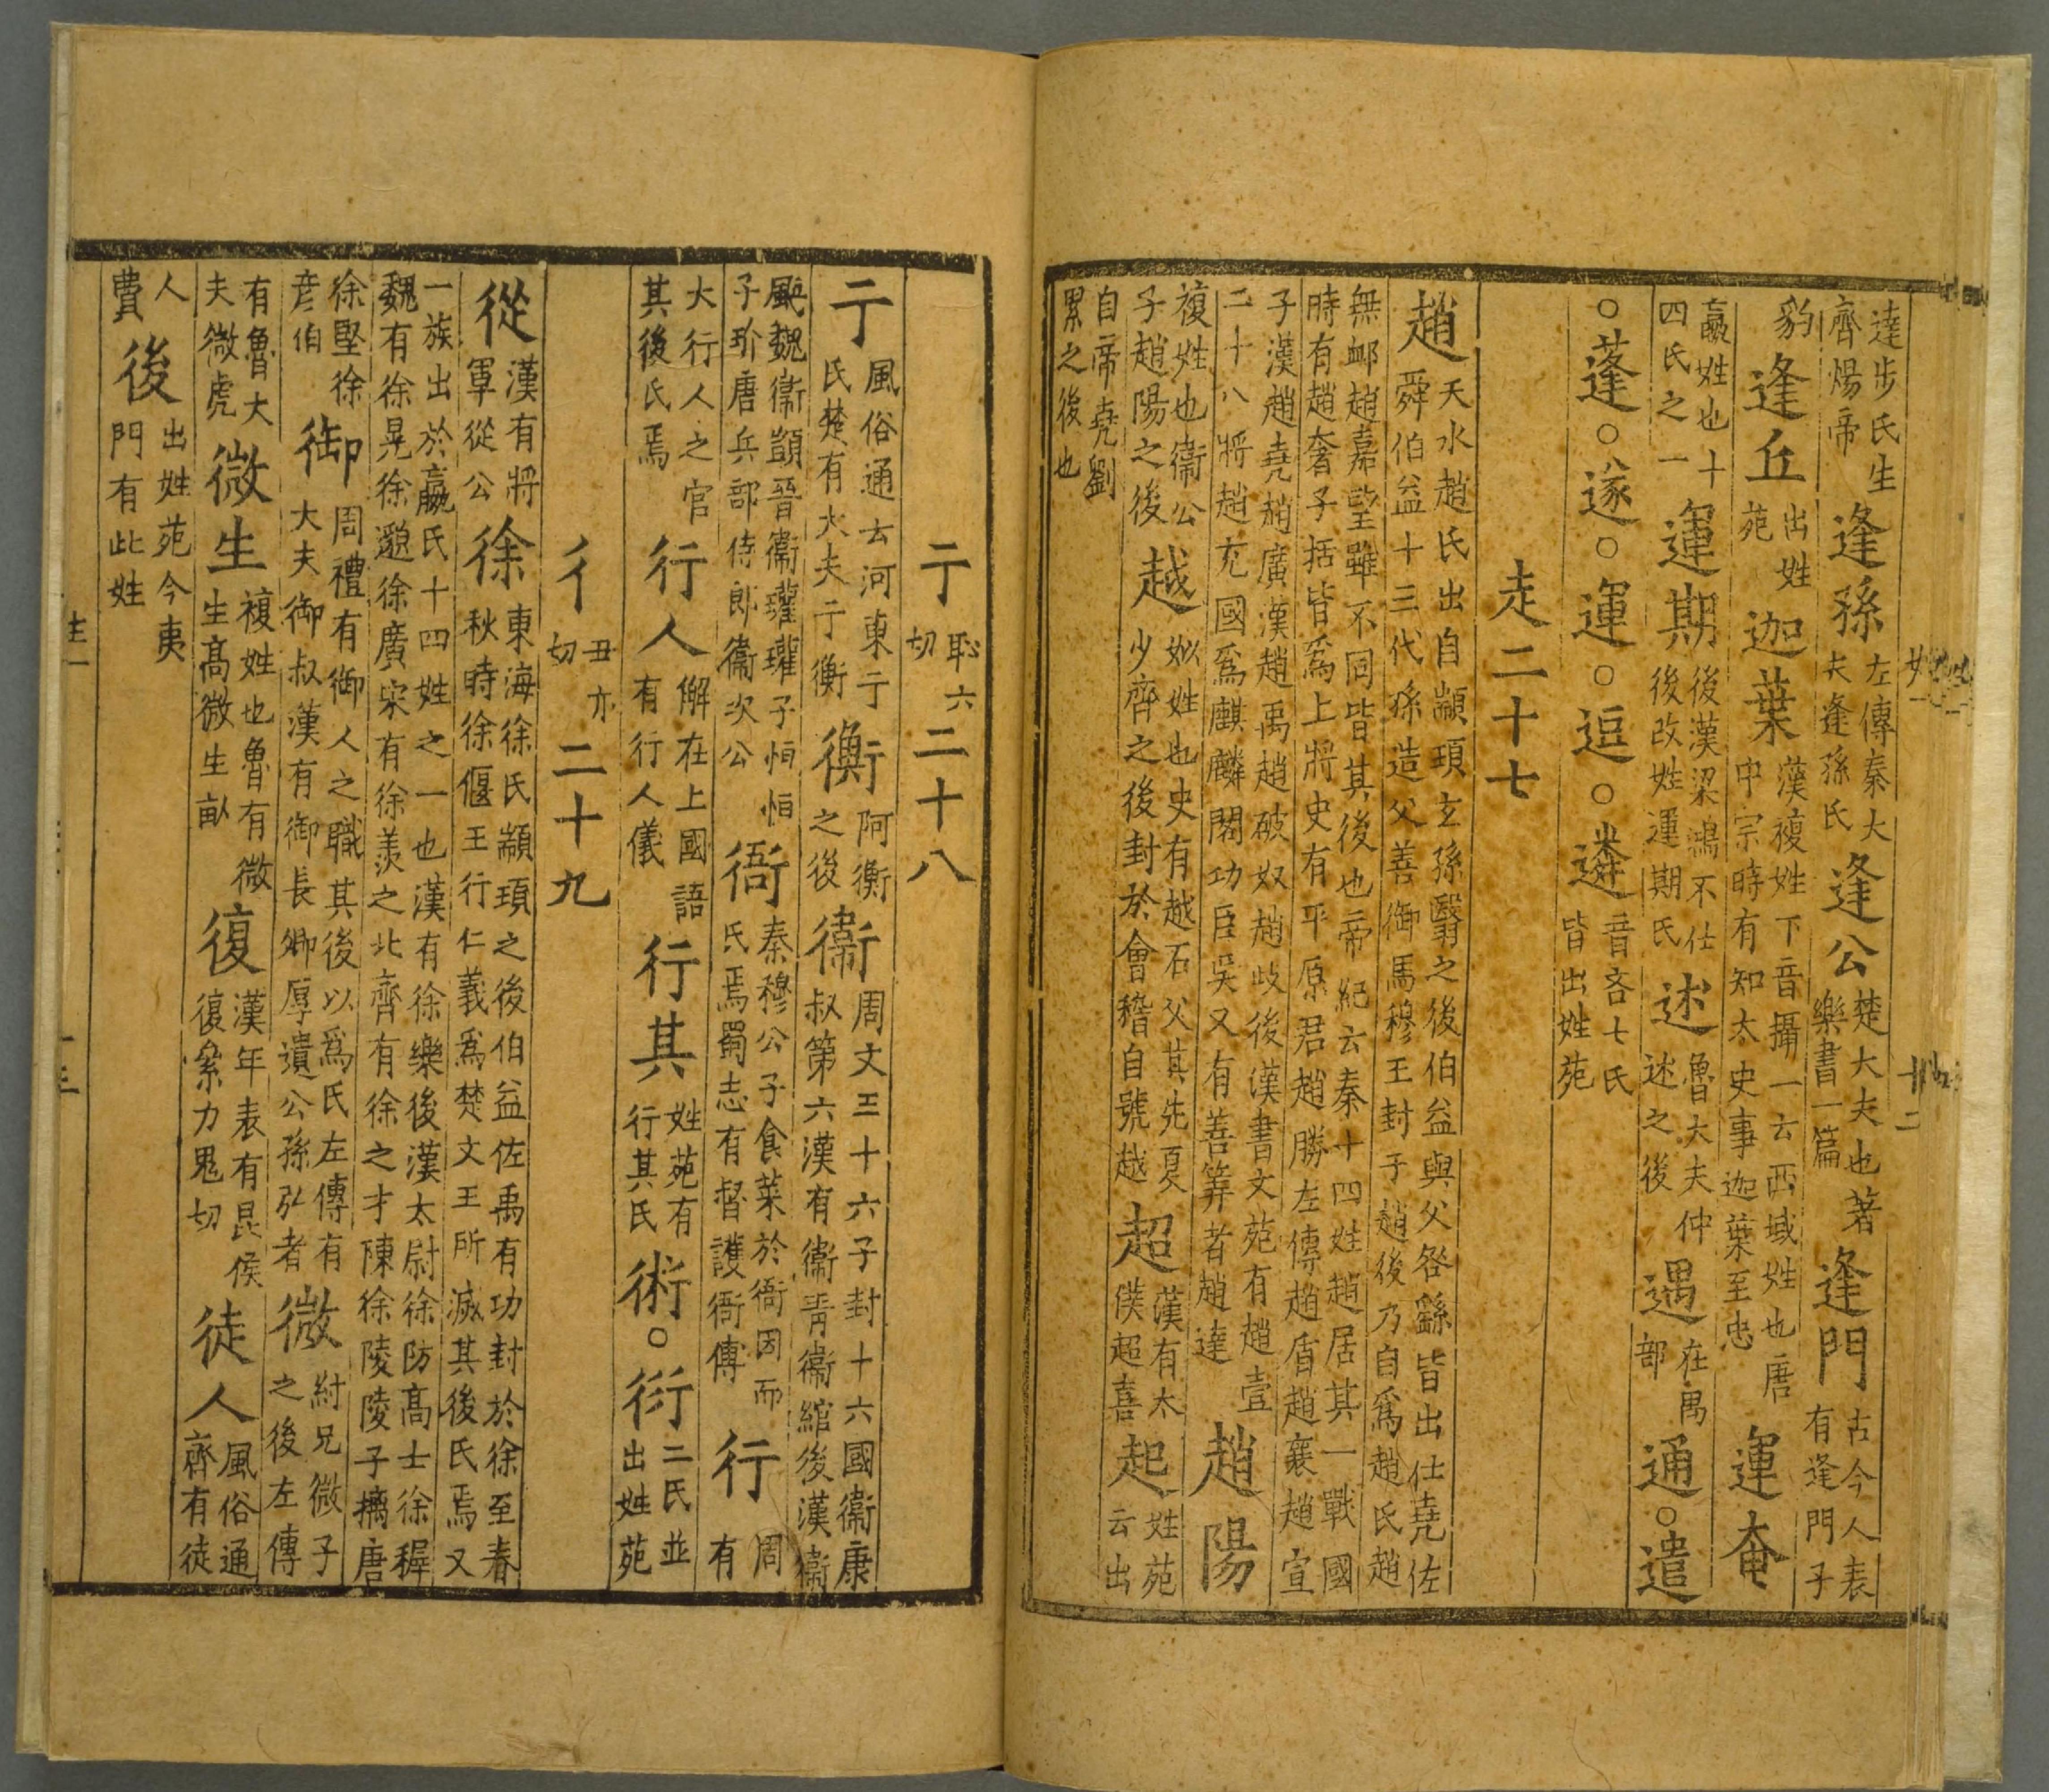 達步氏生
齊煬帝
逢孫
左傳秦大
夫逢孫氏
逢公
楚大夫也著
樂書一篇
逢門
古今人表
有逢門子
豹
逢丘
出姓
苑
迦葉
漢複姓下音攝一云西域姓也唐
中宗時有知太史事迦葉至忠
運奄
嬴姓也十
四氏之一
運期
後漢梁鴻不仕
後改姓運期氏
述
魯大夫仲
述之後
遇
在禺
部
通○遣
○蓬○遂○運○逗○遴
音吝七氏
皆出姓苑
走二十七
趙
天水趙氏出自顓頊玄孫翳之後伯益與父咎繇皆出仕堯佐
舜伯益十三代孫造父善御馬穆王封于趙後乃自爲趙氏趙
無卹趙嘉望雖不同皆其後也帝紀云秦十四姓趙居其一戰國
時有趙奢子括皆爲上將史有平原君趙勝左傳趙盾趙襄趙宣
子漢趙堯趙廣漢趙禹趙破奴趙歧後漢書文苑有趙壹
二十八將趙充國爲麒麟閣功臣吳又有善筭者趙達
趙陽
複姓也衞公
子趙陽之後
越
姒姓也史有越石父其先夏
少齊之後封於會稽自號越
超
漢有太
僕超喜
起
姓苑
云出
自帝堯劉
累之後也
亍
恥六
切
二十八
亍
風俗通去河東亍
氏楚有大夫亍衡
衡
阿衡
之後
衞
周文王十六子封十六國衞康
叔第六漢有衞青衞綰後漢衞
颯魏衞顗晉衞瓘瓘子恒恒
子玠唐兵部侍郎衞次公
衙
秦穆公子食菜於衙因而
氏焉蜀志有督護衙傳
行
周
有
大行人之官
其後氏焉
行人
解在上國語
有行人儀
行其
姓苑有
行其氏
術○衍
二氏並
出姓苑
彳
丑亦
切
二十九
從
漢有將
軍從公
徐
東海徐氏顓頊之後伯益佐禹有功封於徐至春
秋時徐偃王行仁義爲楚文王所滅其後氏焉又
一族出於嬴氏十四姓之一也漢有徐樂後漢太尉徐防高士徐稺
魏有徐晃徐邈徐廣宋有徐羨之北齊有徐之才陳徐陵陵子摛唐
徐堅徐
彥伯
御
周禮有御人之職其後以爲氏左傳有
大夫御叔漢有御長卿厚遺公孫弘者
微
紂兄微子
之後左傳
有魯大
夫微虎
微生
複姓也魯有微
生高微生畝
復
漢年表有昆侯
復絫力鬼切
徒人
風俗通
齊有徒
人
費
後
出姓苑今夷
門有此姓